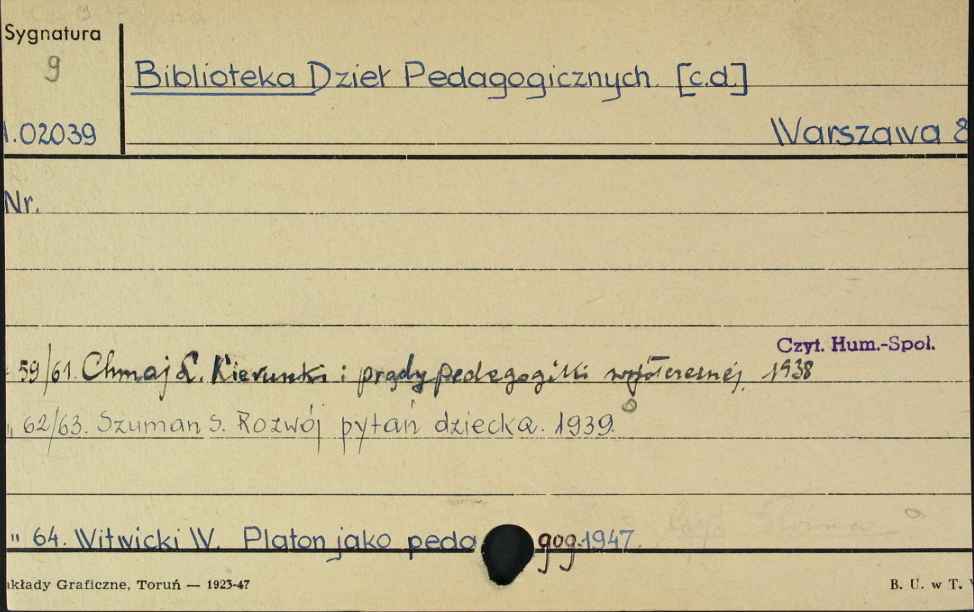 Sygnatura
9
Biblioteka Dzieł Pedagogicznych. [c.d.]
1.02039
Warszawa 8
Nr.
Czyt. Hum.-Społ.
59/61. Chmaj L. Kierunki i prądy pedagogiki współczesnej. 1938
" 62/63. Szuman S. Rozwój pytań dziecka. 1939.
" 64. Witwicki W. Platon jako pedagog. 1947.
akłady Graficzne, Toruń — 1923-47
B. U. w T.